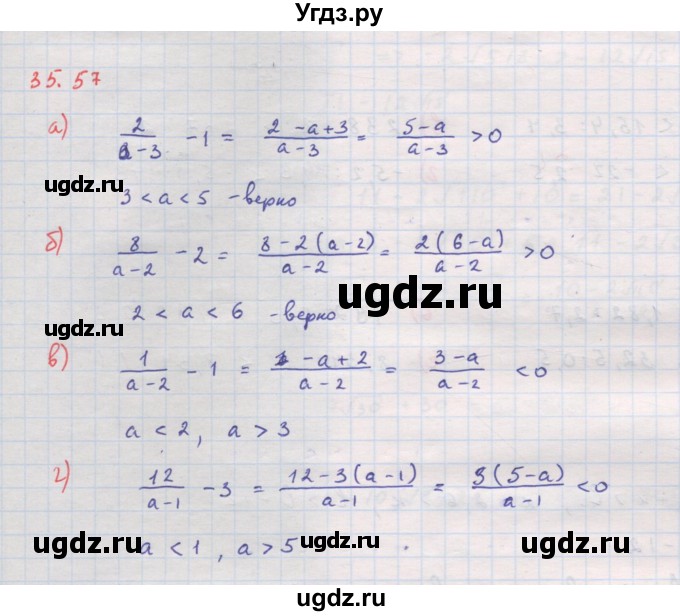 Угдз.ру
35.57
а) 2/(a-3) - 1 = (2 -a+3)/(a-3) = (5-a)/(a-3) >0
ugdz.ru
3 < a < 5 -верно
ugdz.ru
ugdz.ru
б) 8/(a-2) - 2 = (8-2(a-2))/(a-2) = 2(6-a)/(a-2) >0
ugdz.ru
2 < a < 6 -верно
ugdz.ru
в) 1/(a-2) - 1 = (1 -a+2)/(a-2) = (3-a)/(a-2) <0
a < 2, a > 3
г) 12/(a-1) - 3 = (12-3(a-1))/(a-1) = 3(5-a)/(a-1) <0
a < 1, a > 5
ugdz.ru
ugdz.ru
ugdz.ru
ugdz.ru